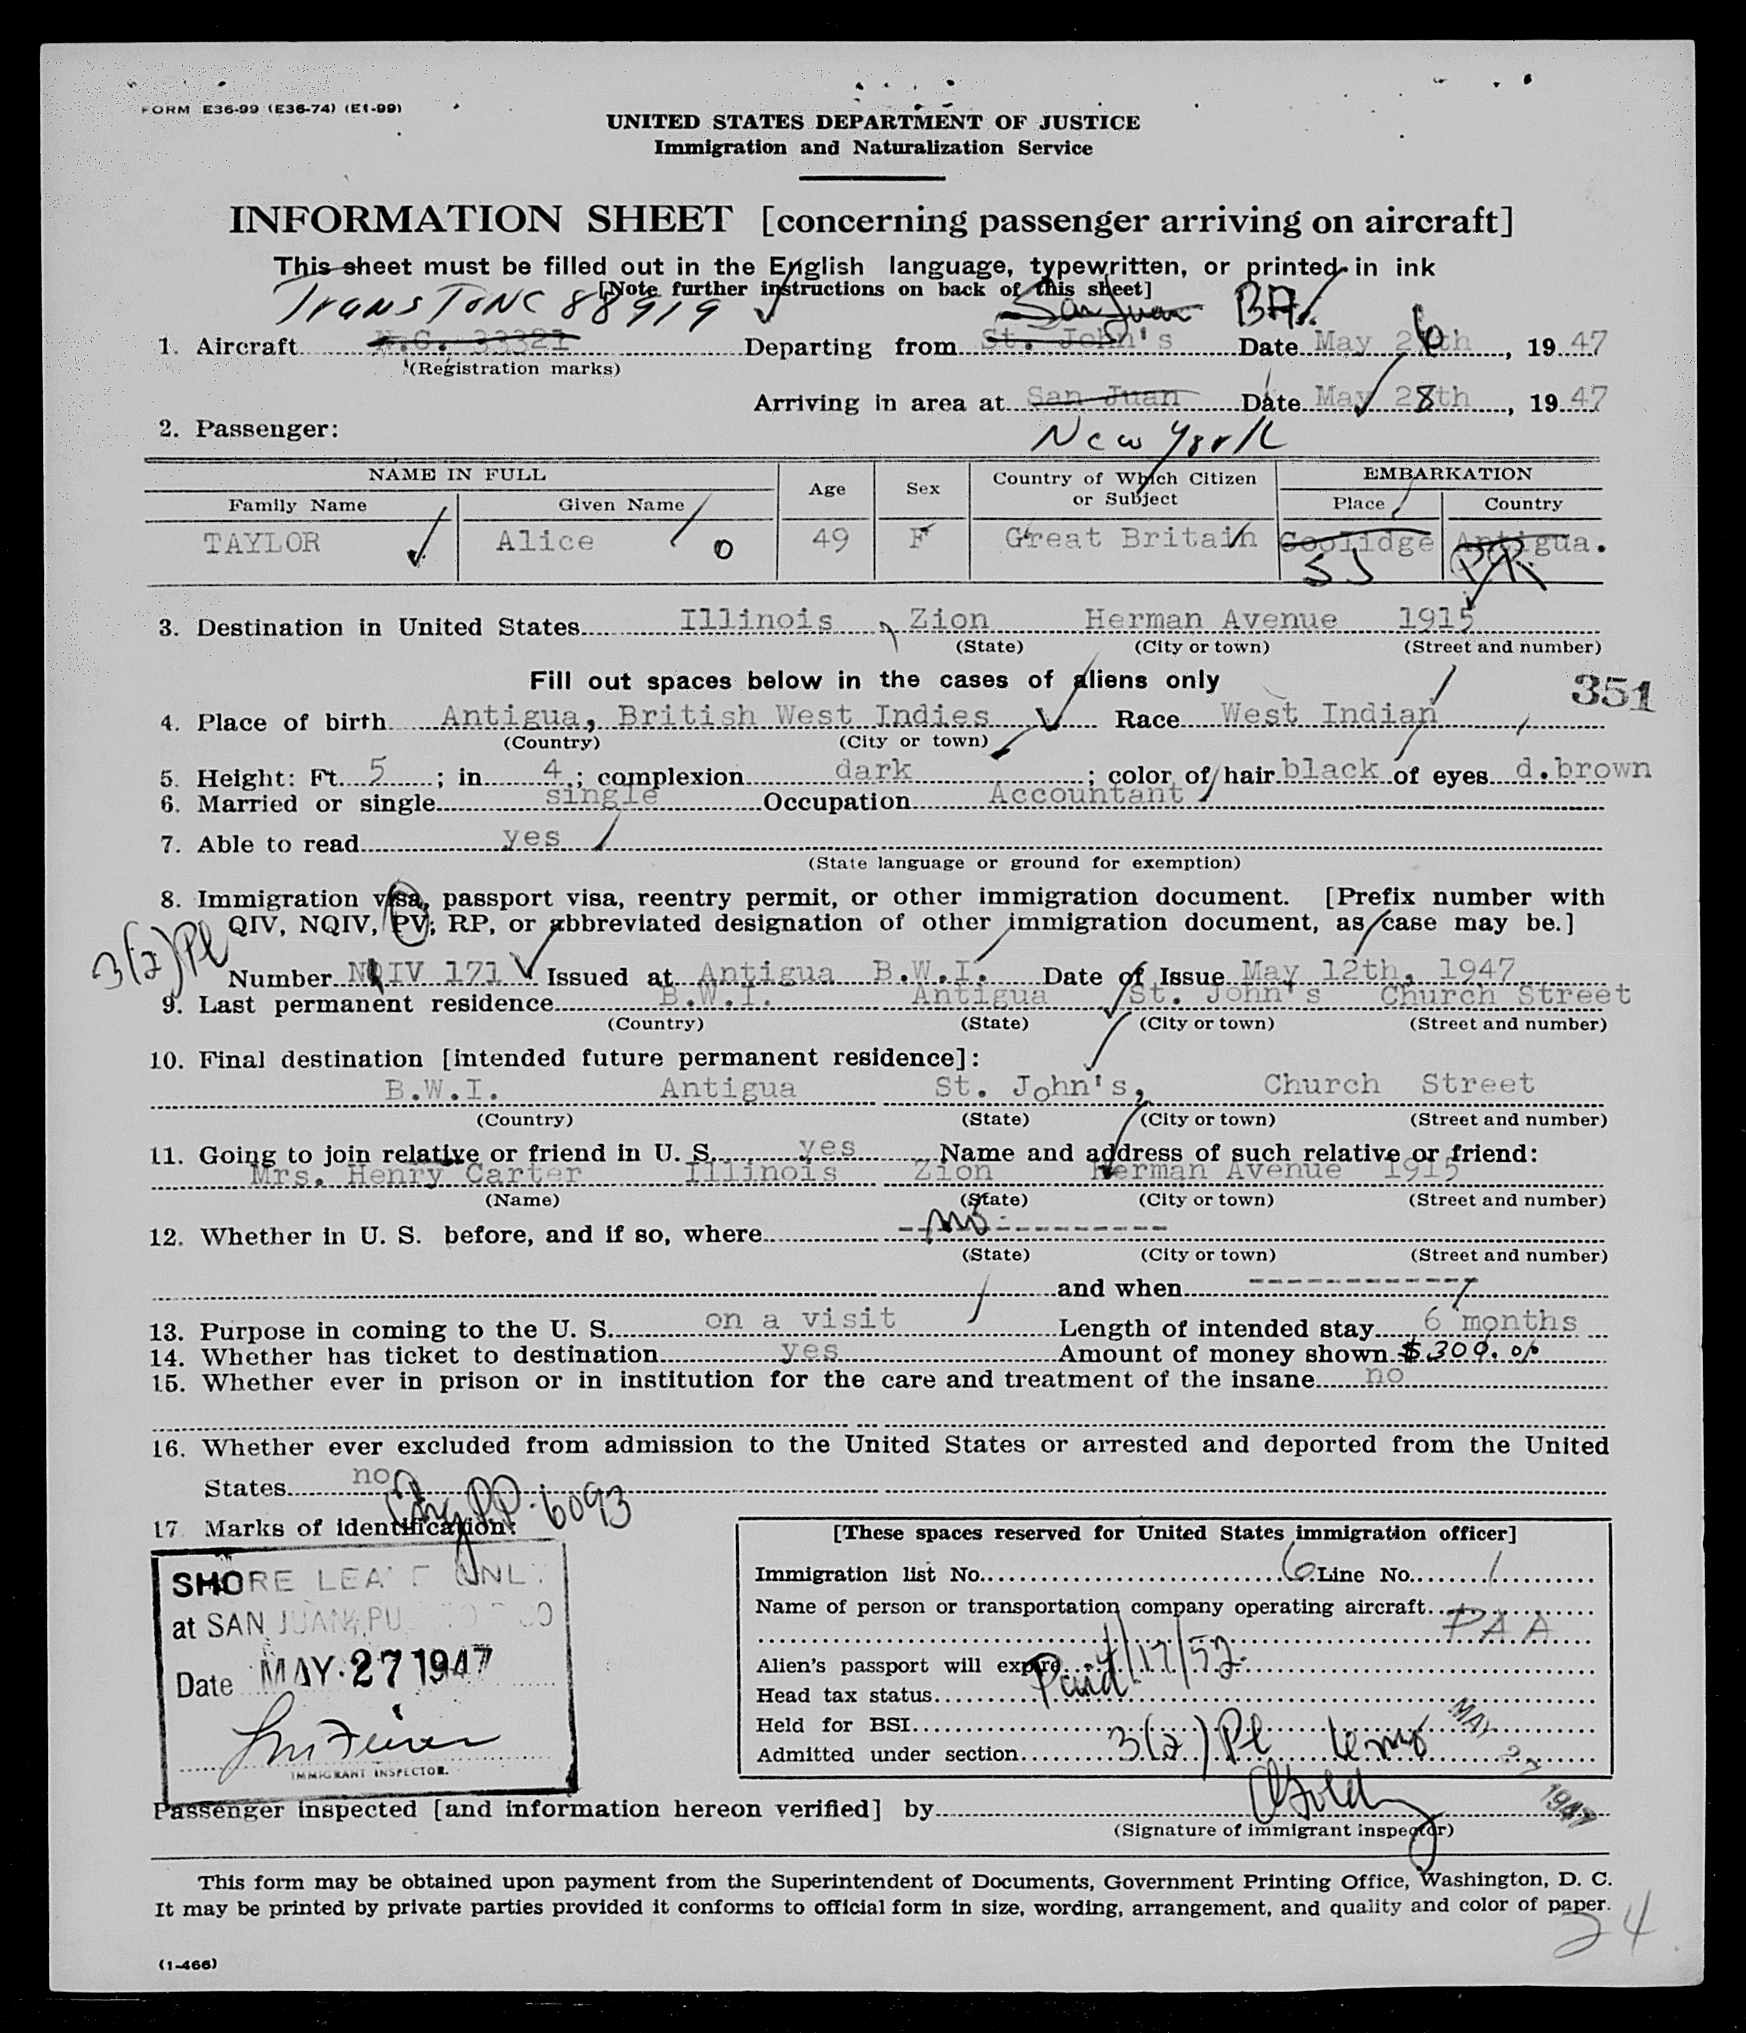 FORM E36-99 (E36-74) (E1-99)
UNITED STATES DEPARTMENT OF JUSTICE
Immigration and Naturalization Service
INFORMATION SHEET [concerning passenger arriving on aircraft]
This sheet must be filled out in the English language, typewritten, or printed in ink
[Note further instructions on back of this sheet]
Trans To NC 88919 San Juan
1. Aircraft N.C. 33321 Departing from St. John's Date May 26th, 1947
(Registration marks)
Arriving in area at San Juan Date May 28th, 1947
2. Passenger: New York
NAME IN FULL Age Sex Country of Which Citizen or Subject EMBARKATION
Family Name Given Name Place Country
TAYLOR Alice 49 F Great Britain Coolidge Antigua.
SJ
3. Destination in United States Illinois, Zion Herman Avenue 1915
(State) (City or town) (Street and number)
Fill out spaces below in the cases of aliens only
351
4. Place of birth Antigua, British West Indies Race West Indian
(Country) (City or town)
5. Height: Ft. 5; in 4; complexion dark; color of hair black of eyes d.brown
6. Married or single single Occupation Accountant
7. Able to read yes
(State language or ground for exemption)
8. Immigration visa, passport visa, reentry permit, or other immigration document. [Prefix number with
QIV, NQIV, PV, RP, or abbreviated designation of other immigration document, as case may be.]
3(2) Pl
Number NQIV 171 Issued at Antigua B.W.I. Date of Issue May 12th, 1947
9. Last permanent residence B.W.I. Antigua St. John's Church Street
(Country) (State) (City or town) (Street and number)
10. Final destination [intended future permanent residence]:
B.W.I. Antigua St. John's, Church Street
(Country) (State) (City or town) (Street and number)
11. Going to join relative or friend in U. S. yes Name and address of such relative or friend:
Mrs. Henry Carter Illinois Zion Herman Avenue 1915
(Name) (State) (City or town) (Street and number)
12. Whether in U. S. before, and if so, where no
(State) (City or town) (Street and number)
and when
13. Purpose in coming to the U. S. on a visit Length of intended stay 6 months
14. Whether has ticket to destination yes Amount of money shown $300.00
15. Whether ever in prison or in institution for the care and treatment of the insane no
16. Whether ever excluded from admission to the United States or arrested and deported from the United
States no
PP. 6093
17 Marks of identification:
[These spaces reserved for United States immigration officer]
SHORE LEAVE ONLY
at SAN JUAN, PUERTO RICO
Date MAY 27 1947
IMMIGRANT INSPECTOR.
Immigration list No. 6 Line No. 1
Name of person or transportation company operating aircraft
PAA
Alien's passport will expire 4/17/52.
Head tax status Paid
Held for BSI
Admitted under section 3(2) Pl 6 mo
MAY 27 1947
Passenger inspected [and information hereon verified] by
(Signature of immigrant inspector)
This form may be obtained upon payment from the Superintendent of Documents, Government Printing Office, Washington, D. C.
It may be printed by private parties provided it conforms to official form in size, wording, arrangement, and quality and color of paper.
24
(1-466)